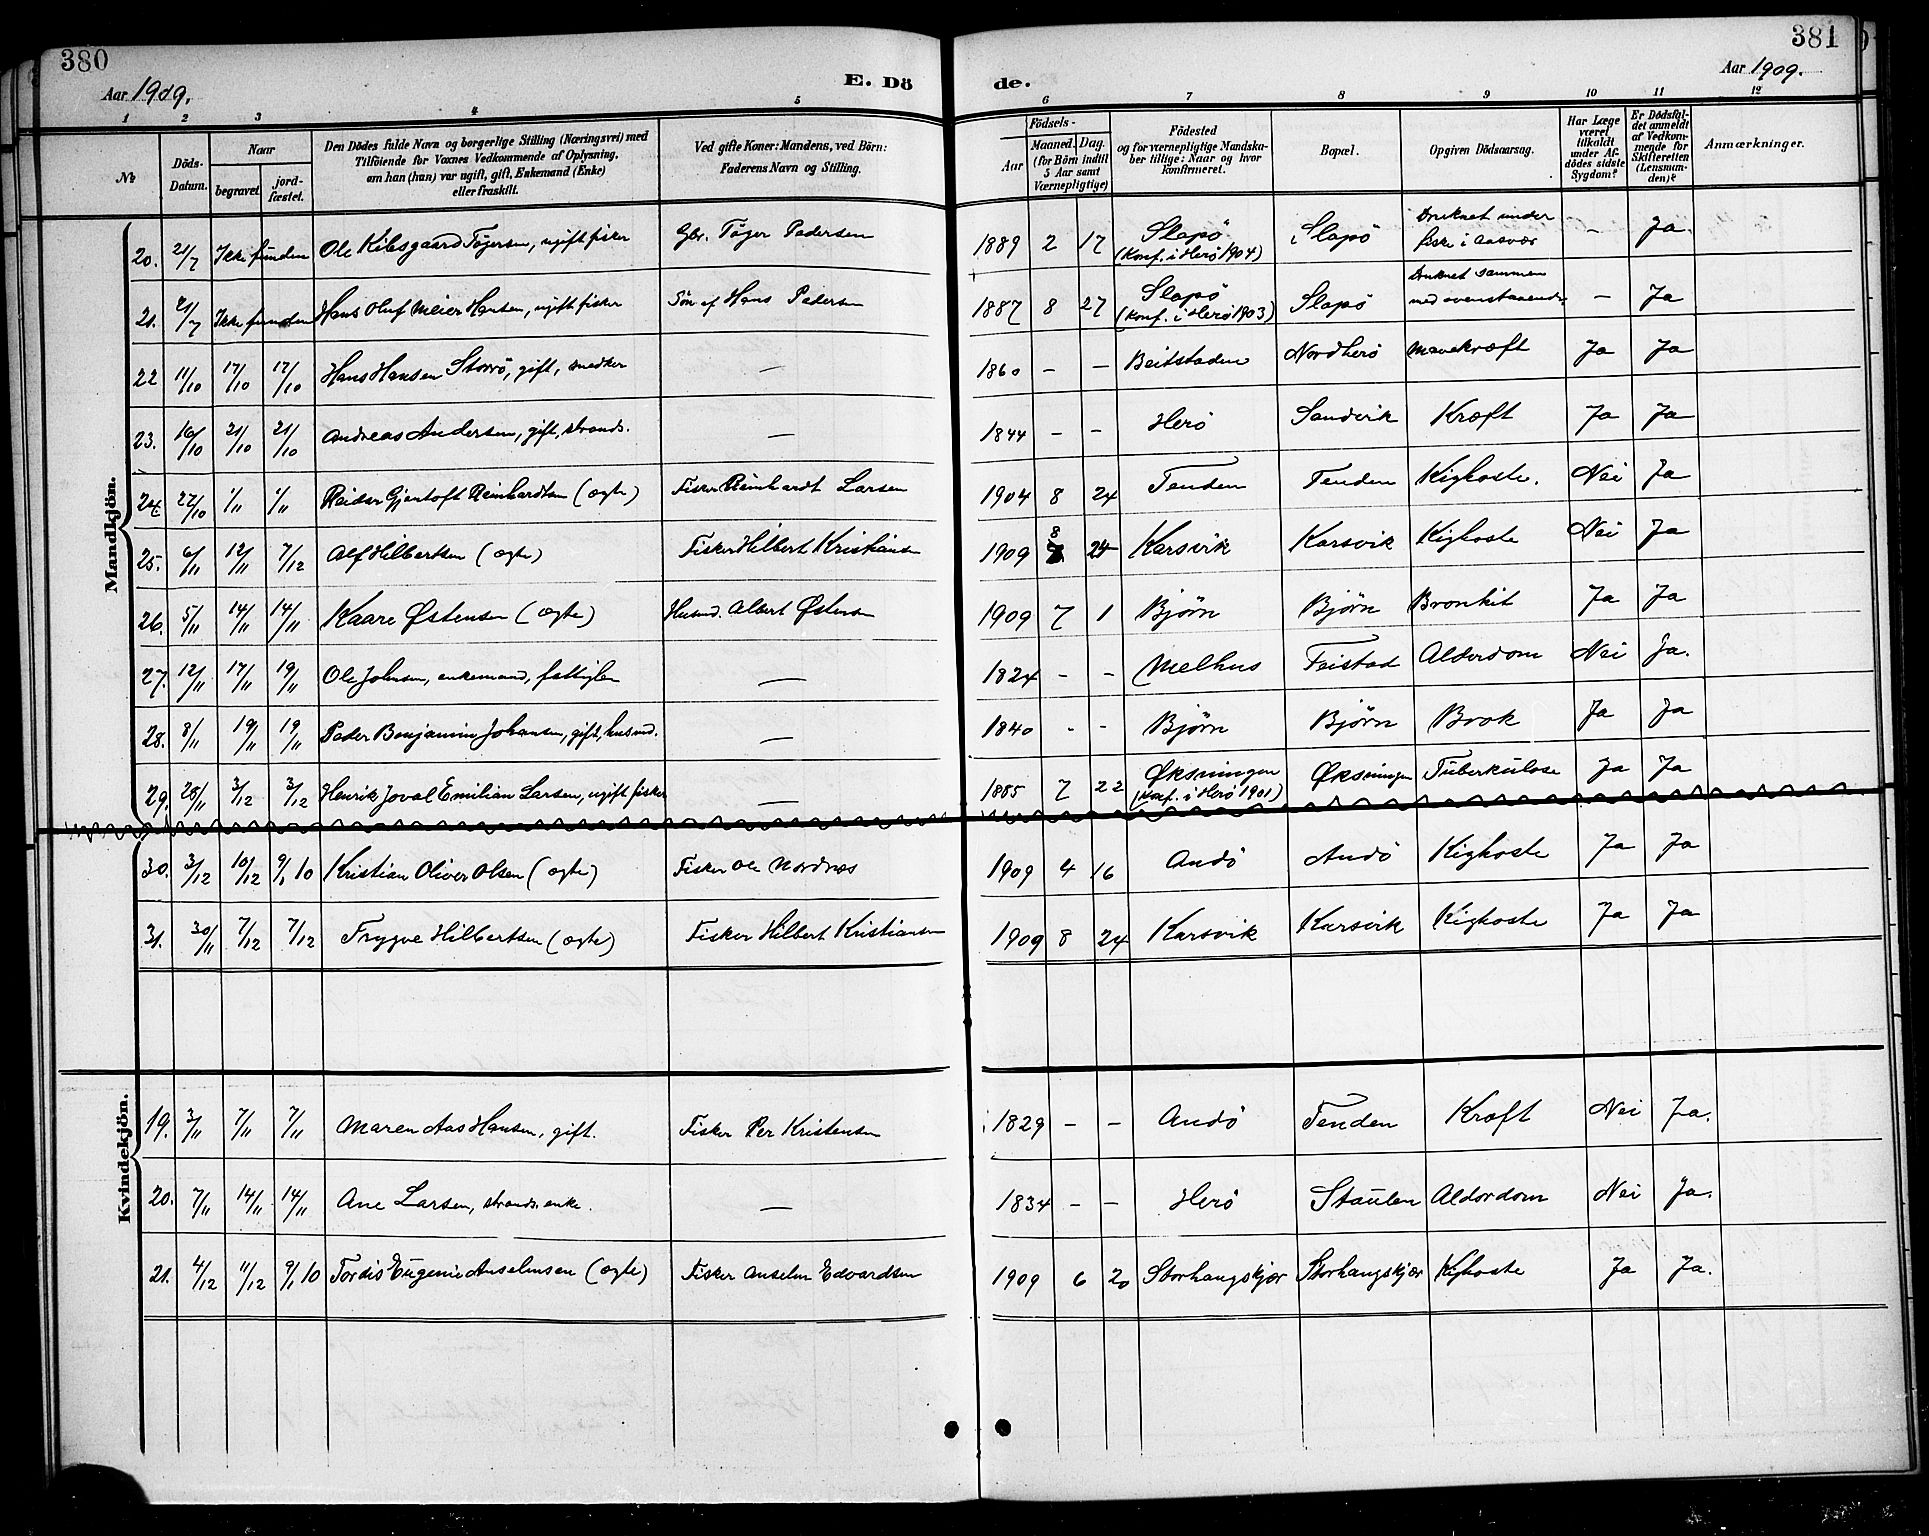 380
381
Aar 1909.
E. Dö
de.
Aar 1909.
1 2 3 4 5 6 7 8 9 10 11 12
№
Döds-Datum.
Naar
begravet.
jord-fæstet.
Den Dödes fulde Navn og borgerlige Stilling (Næringsvei) med
Tilföiende for Voxnes Vedkommende af Oplysning,
om han (hun) var ugift, gift, Enkemand (Enke)
eller fraskilt.
Ved gifte Koner: Mandens, ved Börn:
Faderens Navn og Stilling.
Födsels-
Aar
Maaned. Dag.
(for Börn indtil
5 Aar samt
Værnepligtige)
Födested
og for værnepligtige Mandska-
ber tillige: Naar og hvor
konfirmeret.
Bopæl.
Opgiven Dödsaarsag.
Har Læge
været
tilkaldt
under Af-
dödes sidste
Sygdom?
Er Dödsfal-
det anmeldt
af Vedkom-
mende for
Skifteretten
(Lensman-
den)?
Anmærkninger.
Mandkjön.
20. 21/7 Ikke funden Ole Kilsgaard Tøgersen, ugift fisker Gbr. Tøger Pedersen 1889 2 17 Slapø (Konf. i Herø 1904) Slapø Druknet under fiske i Aasvær - Ja.
21. 21/7 Ikke funden Hans Oluf Meier Hansen, ugift fisker Søn af Hans Pedersen 1887 8 27 Slapø (Konf. i Herø 1903) Slapø Druknet sammen med ovenstaaende - Ja
22 11/10 17/10 17/10 Hans Hansen Storrø, gift, snedker — 1860 - - Beitstaden Nordherø Mavekræft Ja Ja
23. 16/10 21/10 21/10 Andreas Andersen, gift, strands. — 1844 - - Herø Sandvik Kræft Ja Ja
24. 27/10 1/11 1/11 Reidar Gjertoft Reinhardtsen (ægte) Fisker Reinhardt Larsen 1904 8 24 Tenden Tenden Kighoste. Nei Ja
25. 6/11 12/11 7/12 Alf Hilbertsen (ægte) Fisker Hilbert Kristiansen 1909 8 24 Karsvik Karsvik Kighoste Nei Ja
26. 5/11 14/11 14/11 Kaare Østensen (ægte) Husmd. Albert Østensen 1909 7 1 Bjørn Bjørn Bronkit Ja Ja
27. 12/11 17/11 19/11 Ole Johnsen, enkemand, fattiglem — 1824 - - Melhus Feistad Alderdom Nei Ja.
28. 8/11 19/11 19/11 Peder Benjamin Johansen, gift, husmd. — 1840 - - Bjørn Bjørn Brok Ja Ja
29. 28/11 3/12 3/12 Henrik Joval Emilian Larsen, ugift fisker — 1885 7 22 Øksningen (Konf. i Herø 1901) Øksningen Tuberkulose Ja Ja
30. 3/12 10/12 9/1 10 Kristian Oliver Olsen (ægte) Fisker Ole Nordnæs 1909 4 16 Andø Andø Kighoste Ja Ja
31. 30/11 7/12 7/12 Trygve Hilbertsen (ægte) Fisker Hilbert Kristiansen 1909 8 24 Karsvik Karsvik Kighoste Ja Ja
Kvindekjön.
19. 3/11 7/11 7/11 Maren Aas Hansen, gift. Fisker Per Kristensen 1829 - - Andø Tenden Kræft Nei Ja.
20. 7/11 14/11 14/11 Ane Larsen, strands. enke. — 1834 - - Herø Staulen Alderdom Nei Ja.
21. 4/12 11/12 9/1 10 Tordis Eugenie Anselmsen (ægte) Fisker Anselm Edvardsen 1909 6 20 Storhaugskjær Storhaugskjær Kighoste Ja Ja.